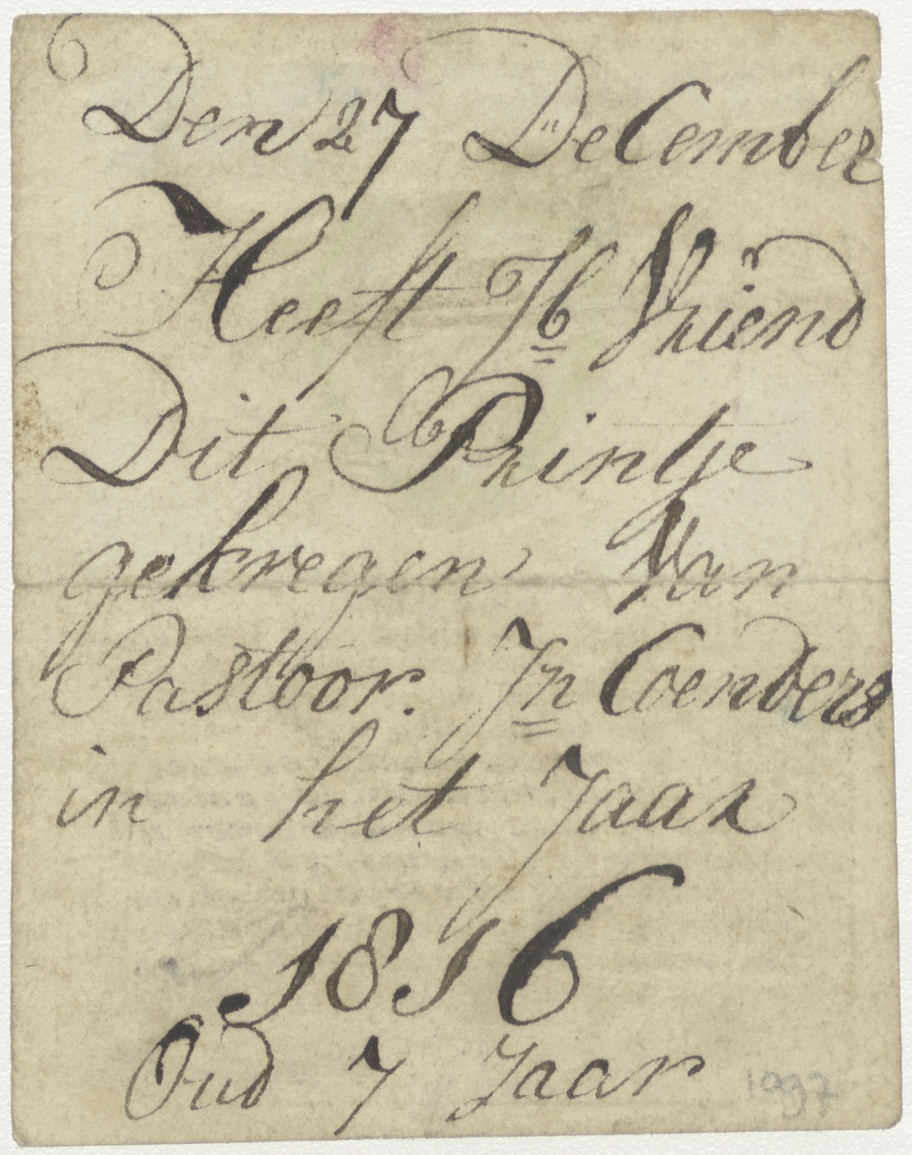 Den 27 DeCember
Heeft Jb Vriend
Dit Printje
gekregen Van
Pastoor. Jn Coenders
in het Jaar
1816
Oud 7 Jaar
1997